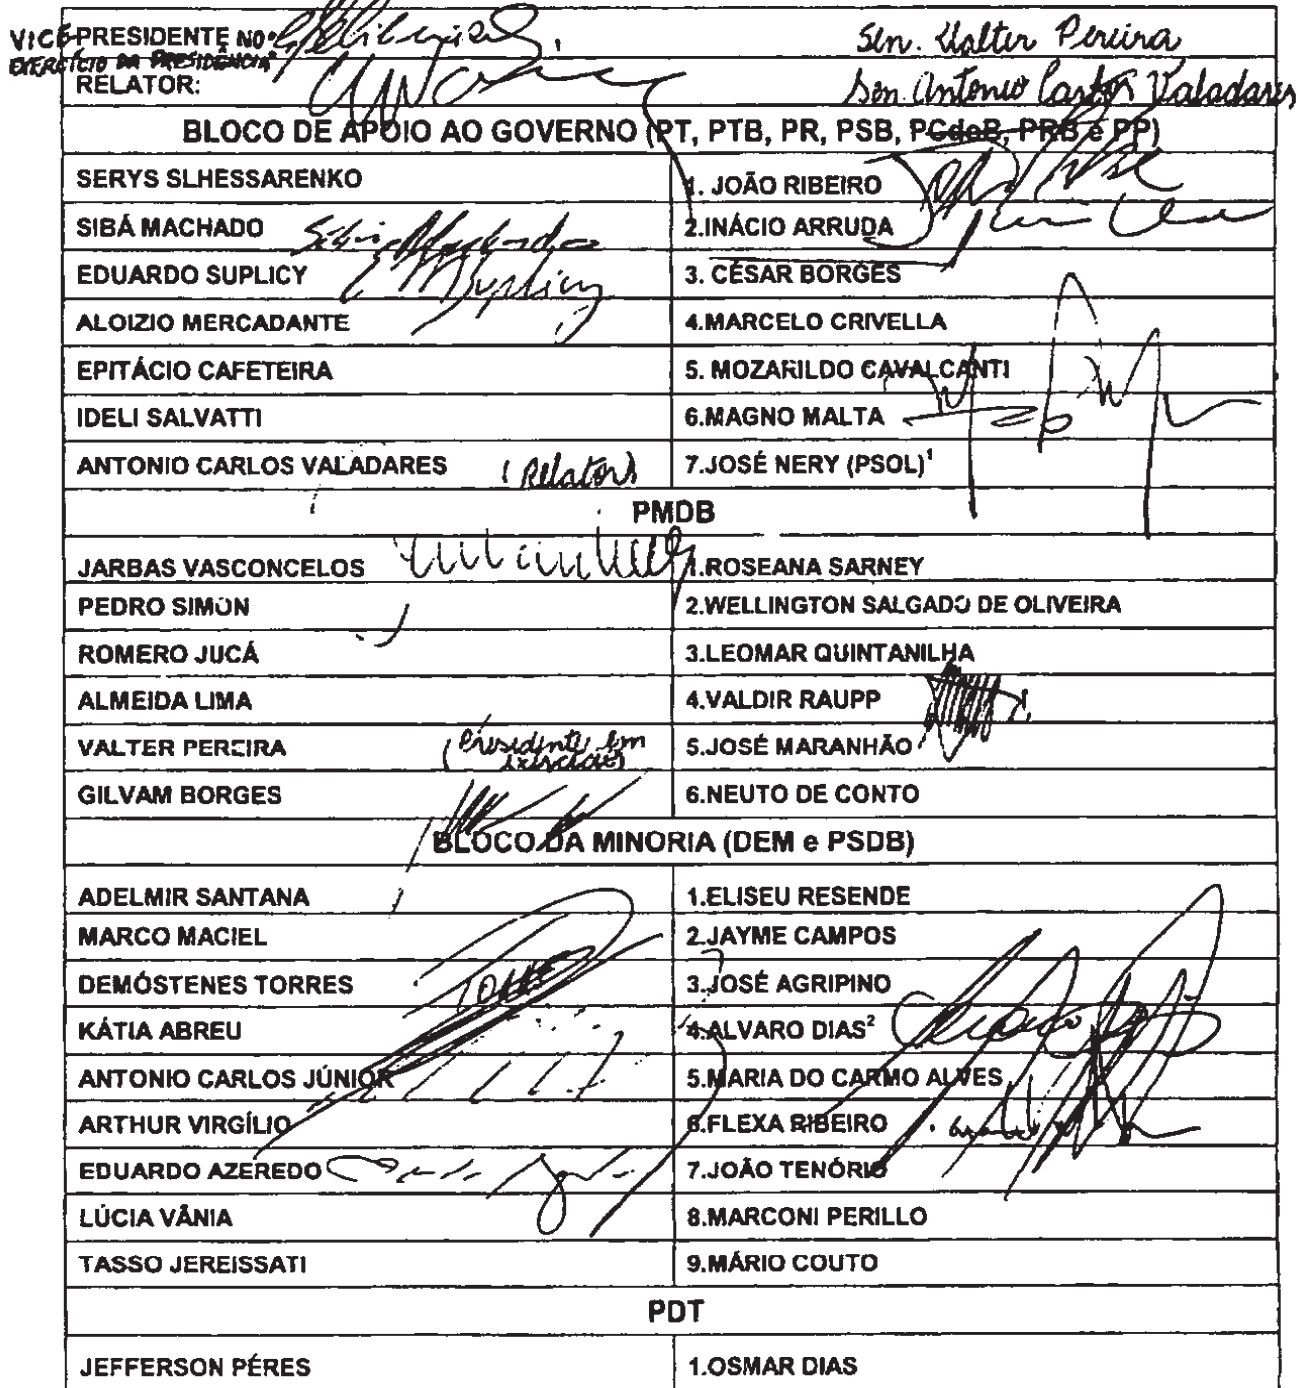 VICE-PRESIDENTE NO
EXERCÍCIO DA PRESIDÊNCIA
Sen. Valter Pereira
RELATOR:
Sen. Antonio Carlos Valadares
BLOCO DE APOIO AO GOVERNO (PT, PTB, PR, PSB, PCdoB, PRB e PP)
SERYS SLHESSARENKO
1. JOÃO RIBEIRO
SIBÁ MACHADO Sibá Machado
2.INÁCIO ARRUDA
EDUARDO SUPLICY Suplicy
3. CÉSAR BORGES
ALOIZIO MERCADANTE
4.MARCELO CRIVELLA
EPITÁCIO CAFETEIRA
5. MOZARILDO CAVALCANTI
IDELI SALVATTI
6.MAGNO MALTA
ANTONIO CARLOS VALADARES (Relator)
7.JOSÉ NERY (PSOL)¹
PMDB
JARBAS VASCONCELOS
1.ROSEANA SARNEY
PEDRO SIMON
2.WELLINGTON SALGADO DE OLIVEIRA
ROMERO JUCÁ
3.LEOMAR QUINTANILHA
ALMEIDA LIMA
4.VALDIR RAUPP
VALTER PEREIRA (Presidente em exercício)
5.JOSÉ MARANHÃO
GILVAM BORGES
6.NEUTO DE CONTO
BLOCO DA MINORIA (DEM e PSDB)
ADELMIR SANTANA
1.ELISEU RESENDE
MARCO MACIEL
2.JAYME CAMPOS
DEMÓSTENES TORRES
3.JOSÉ AGRIPINO
KÁTIA ABREU
4.ALVARO DIAS²
ANTONIO CARLOS JÚNIOR
5.MARIA DO CARMO ALVES
ARTHUR VIRGÍLIO
6.FLEXA RIBEIRO
EDUARDO AZEREDO
7.JOÃO TENÓRIO
LÚCIA VÂNIA
8.MARCONI PERILLO
TASSO JEREISSATI
9.MÁRIO COUTO
PDT
JEFFERSON PÉRES
1.OSMAR DIAS